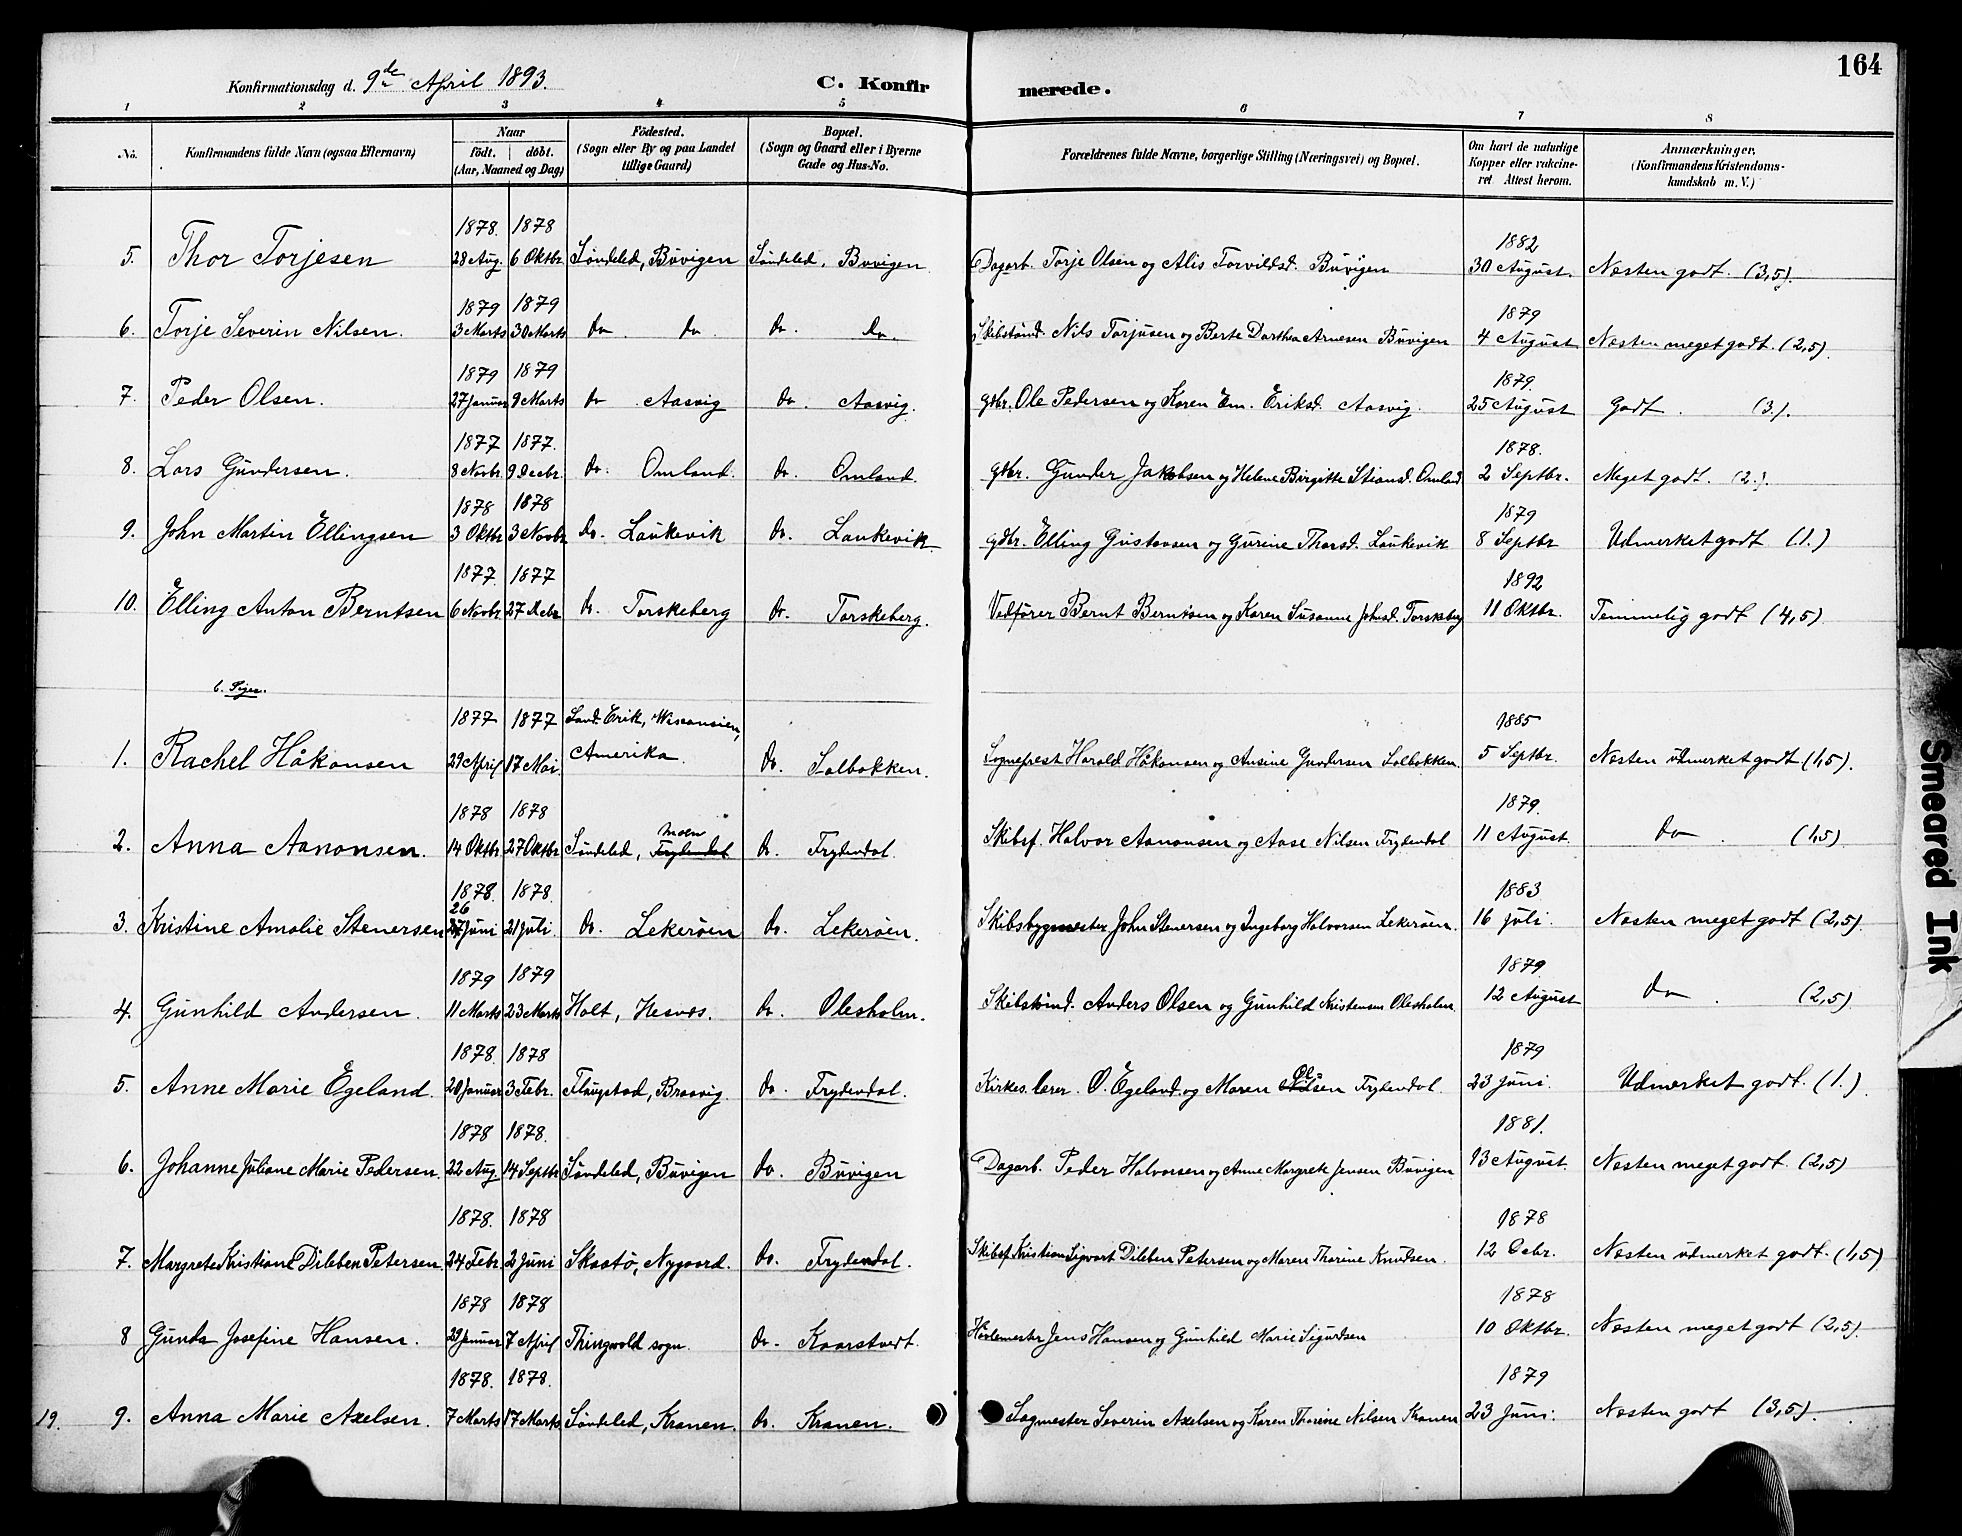 164
Konfirmationsdag d. 9de April 1893. C. Konfir merede.
1 2 3 4 5 6 7 8
No. Konfirmandens fulde Navn (ogsaa Efternavn) Naar født. døbt. (Aar, Maaned og Dag) Fødested. (Sogn eller By og paa Landet tillige Gaard) Bopæl. (Sogn og Gaard eller i Byerne Gade og Hus-No. Forældrenes fulde Navne, borgerlige Stilling (Næringsvei) og Bopæl. Om havt de naturlige Kopper eller vakcineret Attest herom. Anmærkninger. (Konfirmandens Kristendomskundskab m. V.)
1878. 1878 1882
5. Thor Torjesen 28 Aug. 6 Oktbr Søndeled, Buvigen Søndeled, Buvigen Dagarb. Torje Olsen og Alis Torvildsd. Buvigen 30 August. Næsten godt. (3,5).
1879 1879 1879
6. Torje Severin Nilsen. 3 Marts 30 Marts do do. do. do. Skibstømd. Nils Torjusen og Berte Dorthea Arnesen Buvigen 4 August Næsten meget godt. (2,5).
1879 1879 1879.
7. Peder Olsen. 27 Januar 9 Marts do Aasvig do. Aasvig. gdbr. Ole Pedersen og Karen Em. Eriksd. Aasvig. 25 August Godt. (3.).
1877 1877. 1878.
8. Lars Gundersen. 8 Novbr. 9 Decbr. do. Omland. do. Omland. gdbr. Gunder Jakobsen og Helene Birgitte Stiansd. Omland 2 Septbr. Meget godt. (2.).
1878 1878 1879
9. John Martin Ellingsen 3 Oktbr 3 Novbr do. Laukevik do. Laukevik gdbr. Elling Gustavsen og Gurine Thorsd. Laukevik 8 Septbr Udmerket godt (1.)
1877. 1877 1892
10. Elling Anton Berntsen 6 Novbr. 27 Decbr. do. Torskeberg do. Torskeberg. Vedfører Bernt Berntsen og Karen Susanne Johnsd. Torskeberg 11 Oktbr. Temmelig godt (4,5).
b. Piger.
1877 1877 Land. Erik, Wisconsien, 1885
1. Rachel Håkonsen 29 April 17 Mai. Amerika. do. Solbakken. Sogneprest Harald Håkonsen og Ansine Gundersen Solbakken. 5 Septbr. Næsten udmerket godt (1,5).
1878 1878 Moen 1879.
2. Anna Aanonsen. 14 Oktbr 27 Oktbr Søndeled, Frydendal do. Frydendal. Skibsf. Halvor Aanonsen og Aase Nilsen Frydendal 11 August. do. (1,5).
1878. 1878. 1883
26
3. Kristine Amalie Stenersen 27 Juni 21 Juli. do. Lekerøen do. Lekerøen. Skibsbygmester John Stenersen og Ingeborg Halvorsen Lekerøen. 16 Juli. Næsten meget godt (2,5).
1879 1879 1879.
4. Gunhild Andersen. 11 Marts 23 Marts Holt, Hesnæs. do. Olesholm. Skibstømd. Anders Olsen og Gunhild Kristensen Olesholm. 12 August do. (2,5).
1878. 1878 1879
5. Anne Marie Egeland. 20 Januar 3 Febr. Flaugstad, Braavig. do. Frydendal. Kirkes. lærer. O. Egeland og Maren Olsen Frydendal. 23 Juni. Udmerket godt. (1.).
1878 1878. 1881.
6. Johanne Juliane Marie Pedersen. 22 Aug 14 Septbr Søndeled, Buvigen do. Buvigen Dagarb. Peder Halvorsen og Anne Margrete Jensen Buvigen 13 August. Næsten meget godt. (2,5)
1878. 1878 1878
7. Margrete Kristiane Dileben Petersen. 24 Febr. 2 Juni Skaatø, Nygaard. do. Frydendal. Skibsf. Kristian Sigvart Dileben Petersen og Maren Thorine Knudsen. 12 Decbr. Næsten udmerket godt. (1,5)
1878 1878 1878
8 Gunda Josefine Hansen. 29 Januar 7 April Thingvold sogn. do. Kaarstvedt. Høvlemester Jens Hansen og Gunhild Marie Sigurdsen 10 Oktbr. Næsten meget godt (2,5).
1878. 1878. 1879
19. 9. Anna Marie Axelsen. 7 Marts 17 Marts Søndeled, Kranen. do. Kranen. Sagmester Severin Axelsen og Karen Thorine Nilsen Kranen 23 Juni. Næsten godt (3,5).
Smeared Ink